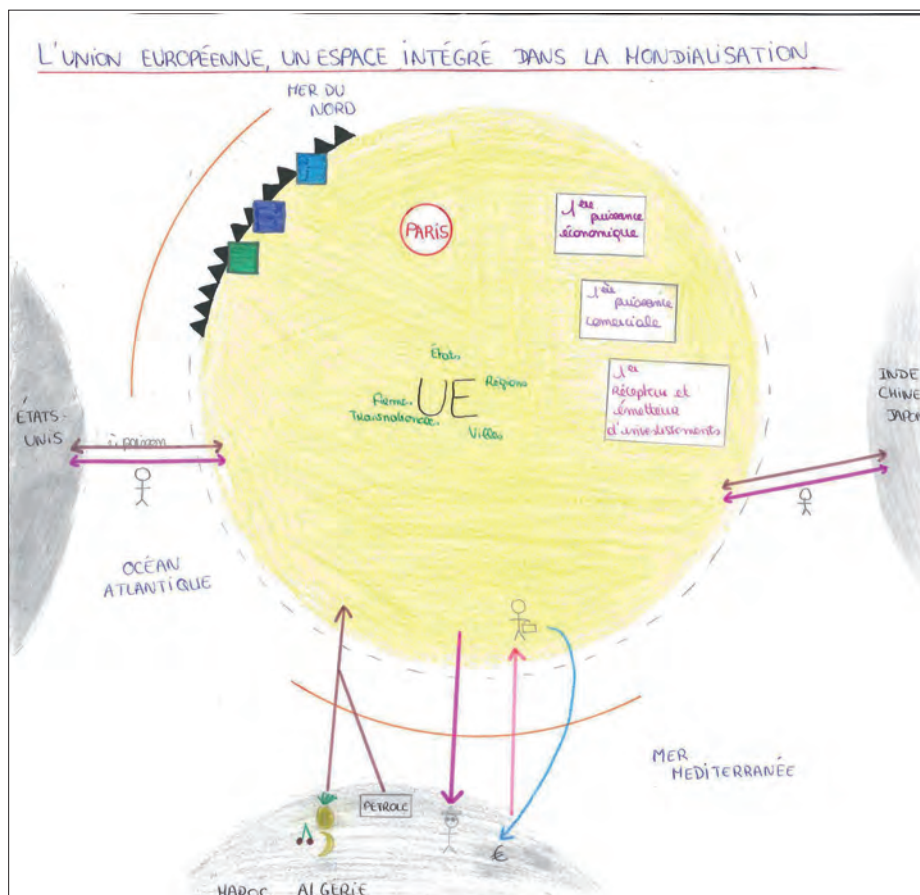 L'UNION EUROPÉENNE, UN ESPACE INTÉGRÉ DANS LA MONDIALISATION
MER DU
NORD
PARIS
1ère
puissance
économique
1ère
puissance
comerciale
1er
Récepteur et
émetteur
d'investissements
États
Régions
UE
Firmes
Transnationales
Villes
ÉTATS-
UNIS
INDE
CHINE
JAPON
OCÉAN
ATLANTIQUE
MER
MEDITERRANÉE
PETROLE
€
MAROC ALGÉRIE